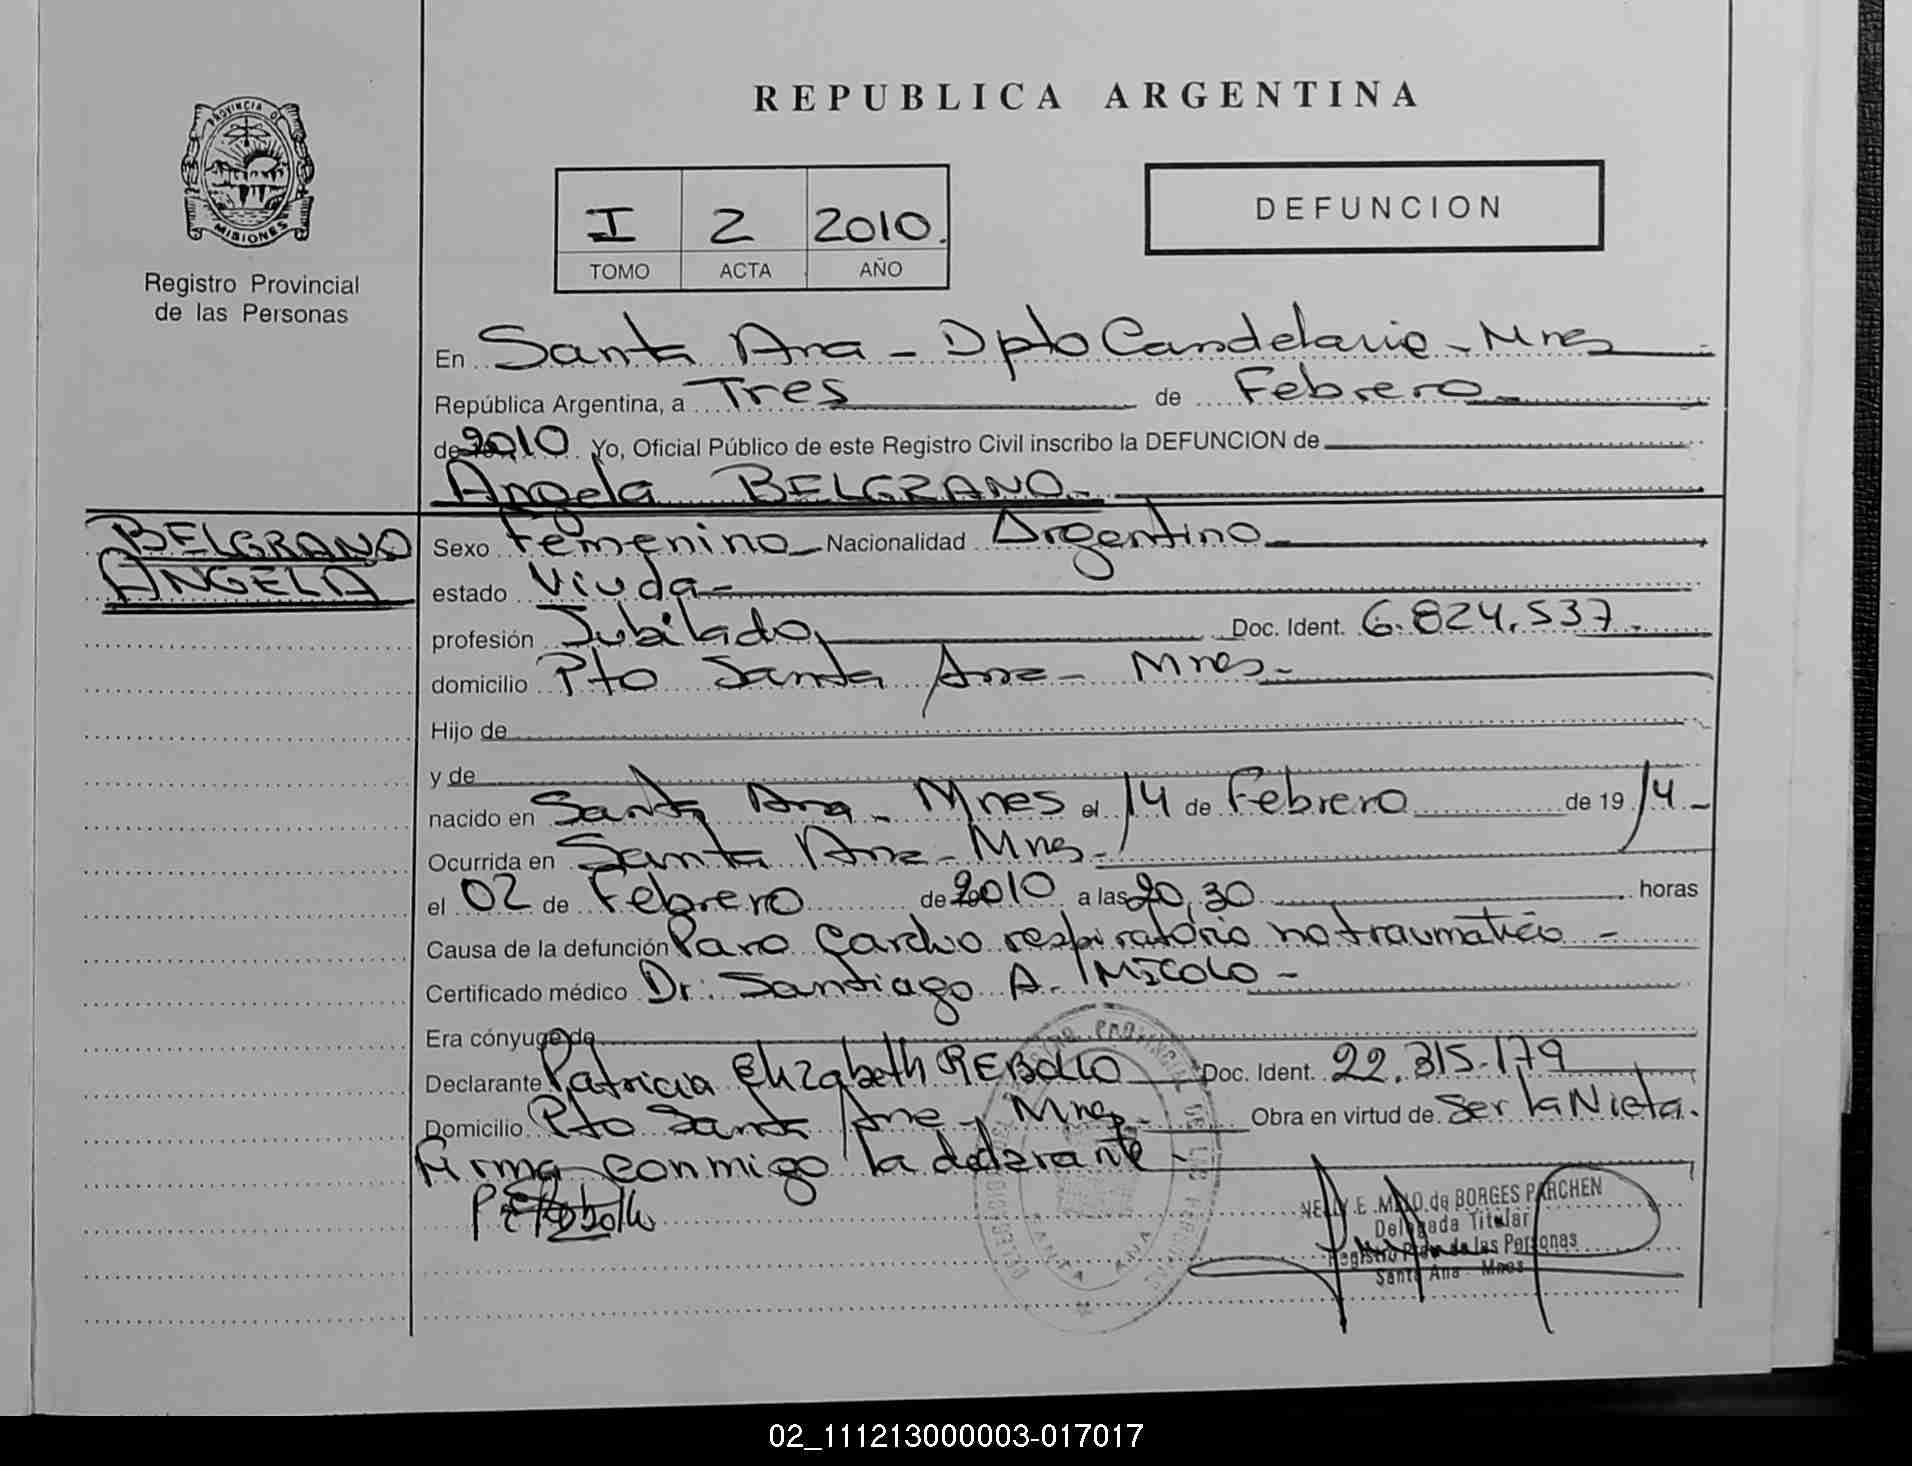 REPUBLICA ARGENTINA
PROVINCIA DE
MISIONES
Registro Provincial
de las Personas
I 2 2010.
TOMO ACTA AÑO
DEFUNCION
En Santa Ana - Dpto Candelaria - Mnes
República Argentina, a Tres de Febrero
de 2010 Yo, Oficial Público de este Registro Civil inscribo la DEFUNCION de
Angela BELGRANO
BELGRANO
ANGELA
Sexo Femenino Nacionalidad Argentino
estado Viuda
profesión Jubilado Doc. Ident. 6.824.537.
domicilio Pto Santa Ana - Mnes
Hijo de
y de
nacido en Santa Ana - Mnes el 14 de Febrero de 19 14
Ocurrida en Santa Ana - Mnes
el 02 de Febrero de 2010 a las 20,30 horas
Causa de la defunción Paro Cardio respiratorio no traumático
Certificado médico Dr. Santiago A. MICOLO
Era cónyuge de
Declarante Patricia Elizabeth REBOLLO Doc. Ident. 22.315.179
Domicilio Pto Santa Ana - Mnes Obra en virtud de Ser la Nieta.
Firma conmigo la declarante
NELLY E. MELO de BORGES PARCHEN
Delegada Titular
Registro Prov. de las Personas
Santa Ana - Mnes
REGISTRO PROVINCIAL DE LAS PERSONAS
SANTA ANA
02_111213000003-017017